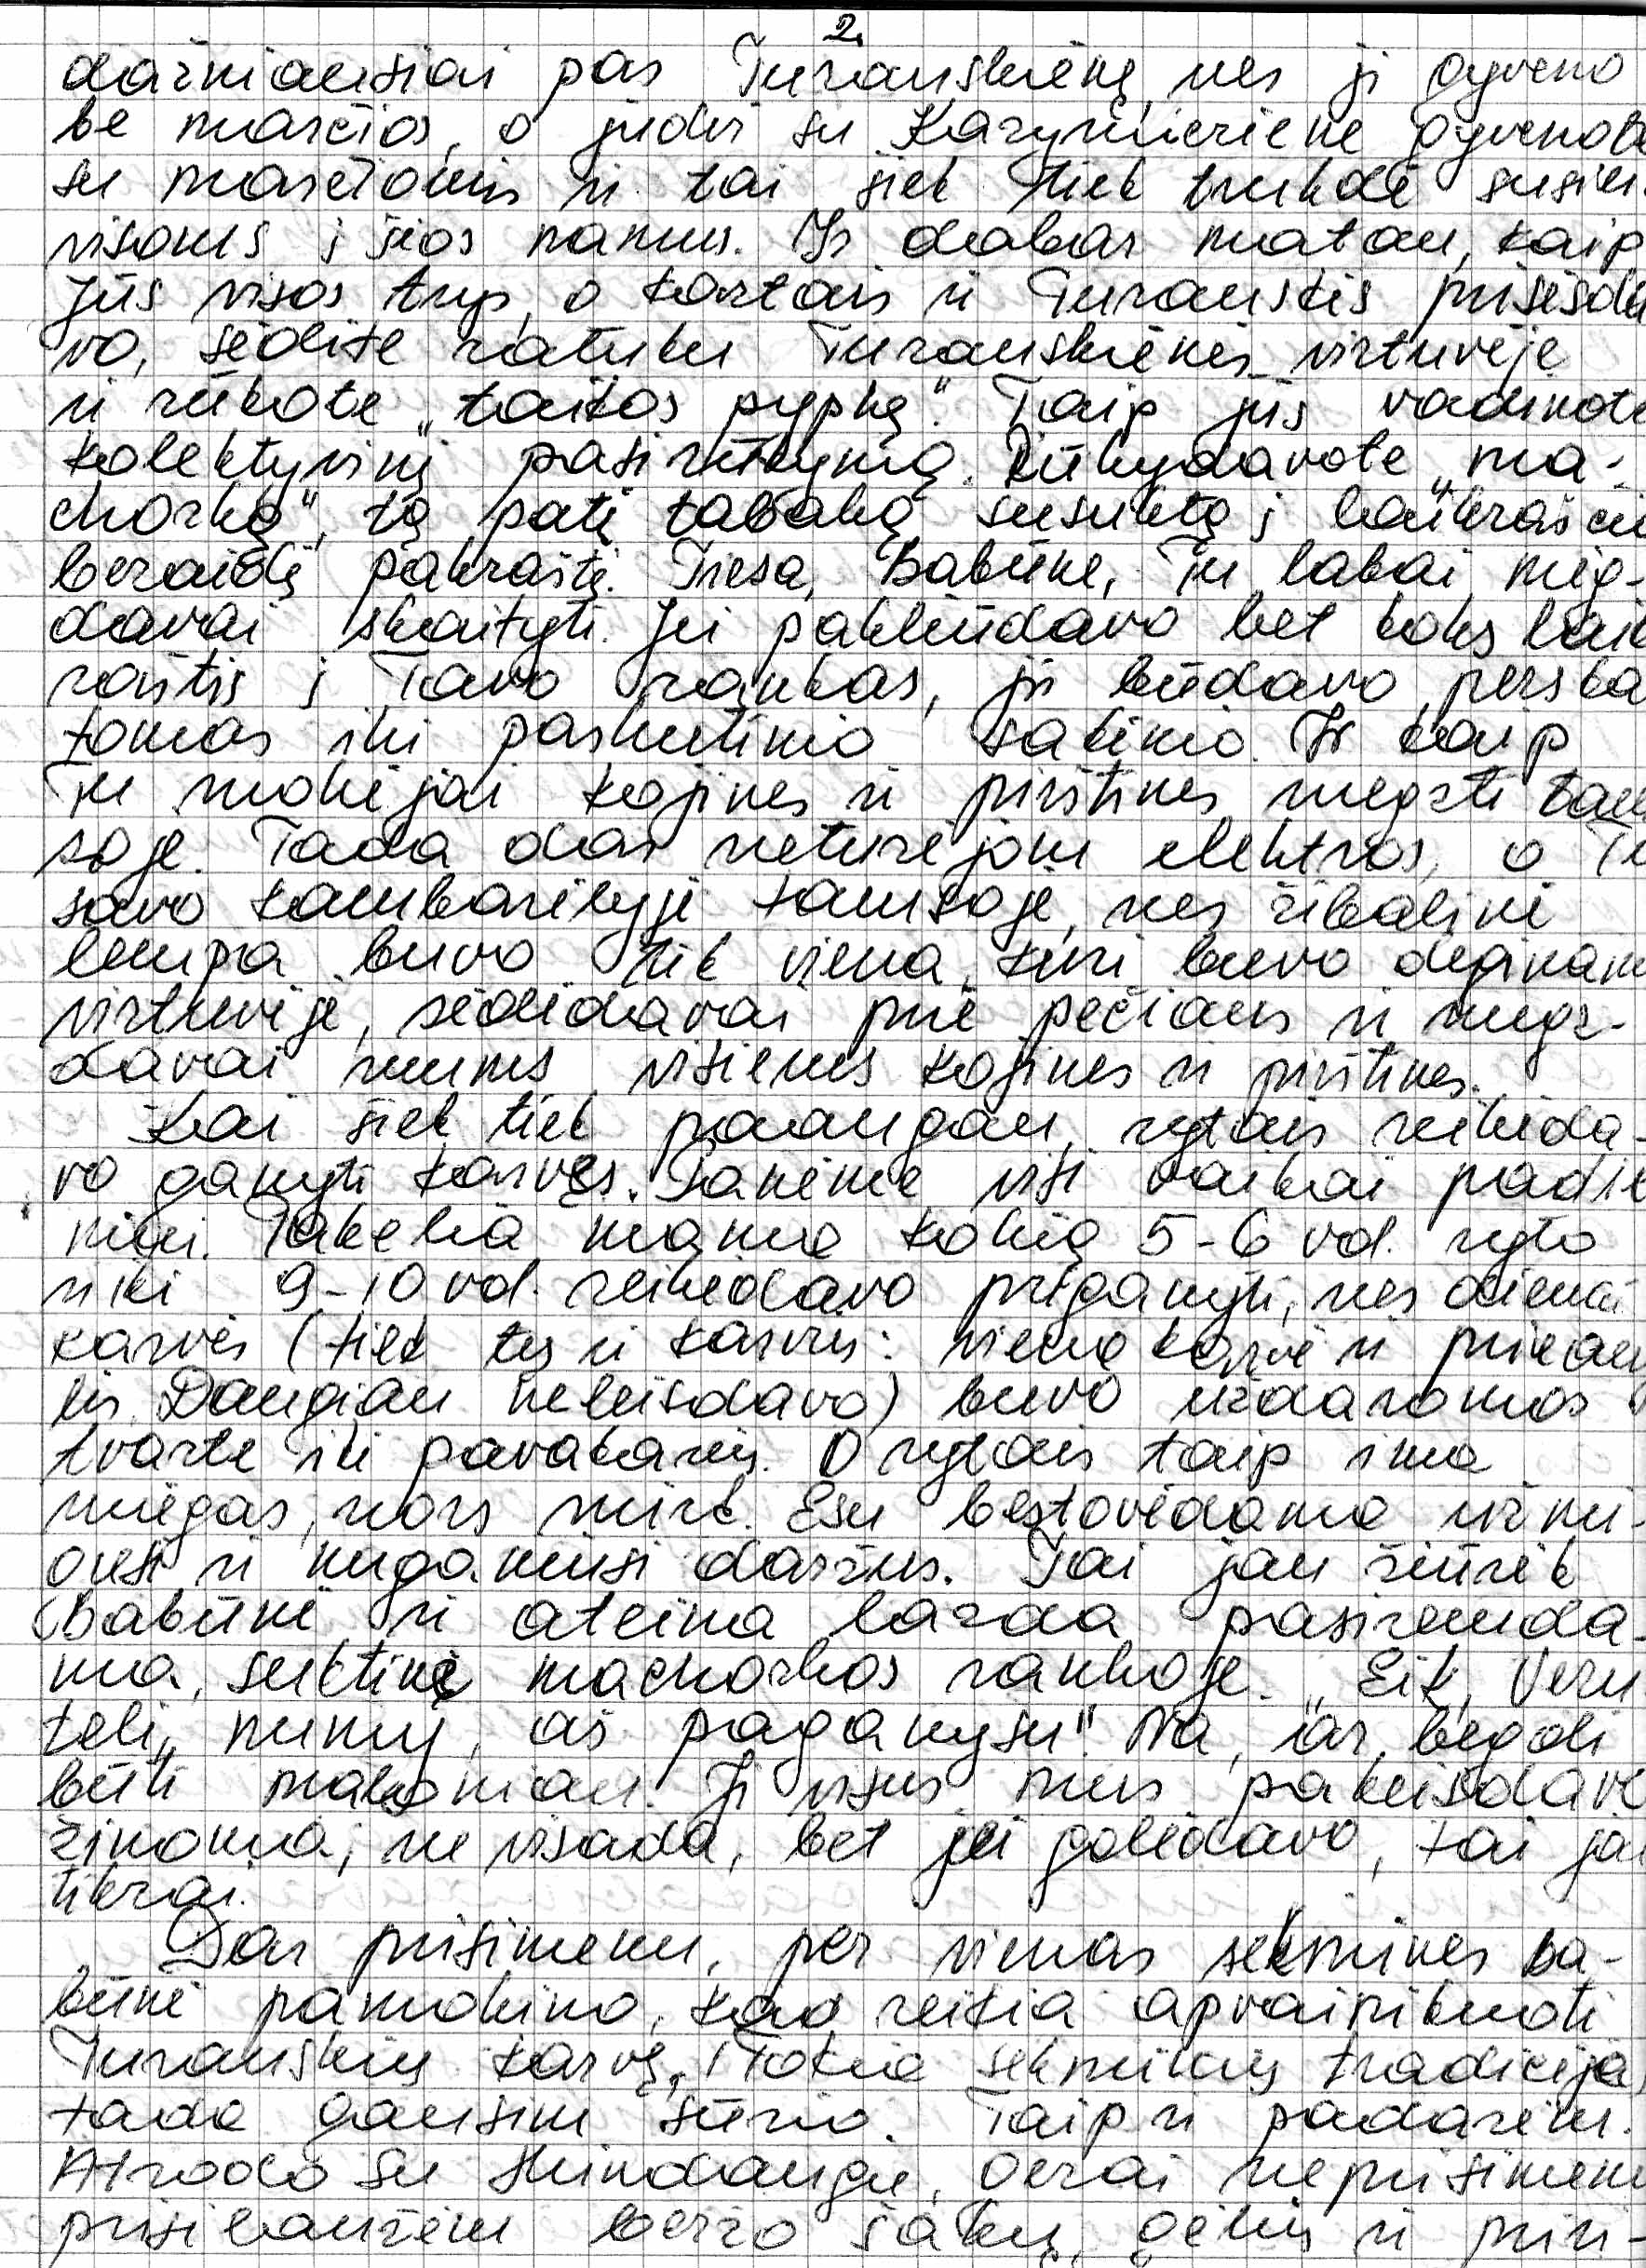 2.
dažniausiai pas Turauskienę, nes ji gyveno
be marčios, o judvi su Kazymieriene gyvenote
su marčiomis ir tai šiek tiek trukdė susiei-
visoms į šios namus. Ir dabar matau, kaip
Jūs visos trys, o kartais ir Turauskis prisėsda
vo, sėdite ratuku Turauskienės virtuvėje
ir rūkote „taikos pypkę". Taip jūs vadinote
kolektyvinį pasirūkymą. Rūkydavote „ma-
chorką", tą patį tabaką susuktą į laikraščio
beraidį pakraštį. Tiesa, Babūne, Tu labai mėg-
davai skaityti. Jei pakliūdavo bet koks laik
raštis į Tavo rankas, jis būdavo perskai
tomas iki paskutinio sakinio. Ir kaip
Tu mokėjai kojines ir pirštines megzti tam
soje. Tada dar neturėjom elektros, o Tu
savo kambarėlyje tamsoje, nes žibalinė
lempa buvo tik viena, kuri buvo deginama
virtuvėje, sėdėdavai prie pečiaus ir megz-
davai mums visiems kojines ir pirštines.
Kai šiek tiek paaugau, rytais reikėda-
vo ganyti karves. Ganėme visi vaikai padie
niui. Tekelia mama kokią 5-6 val. ryto
ir iki 9-10 val. reikėdavo priganyti, nes dieną
karvės (tiek tų ir karvių: viena karvė ir prieaug
lis. Daugiau neleisdavo) buvo uždaromos
tvarte iki pavakarių. O rytais taip ima
miegas, nors mirk. Esu bestovėdama užmi-
gusi ir nuganiusi daržus. Tai jau žiūrėk
Babūnė ir ateina lazda pasiremda-
ma, suktinė machorkos rankoje. „Eik, Veru
tėli, numij, aš paganysu". Na, ar begali
būti maloniau. Ji visus mus pakeisdavo
žinoma, ne visada, bet jei galėdavo, tai jau
tikrai.
Dar prisimenu, per vienas sekmines ba-
būnė pamokino, kad reikia apvainikuoti
Turauskių karvę. (Tokia sekminių tradicija)
tada gausim sūrio. Taip ir padarėm.
Atrodo su Mindaugu, gerai neprisimenu
prisilaužėm beržo šakų, gėlių ir prisi-